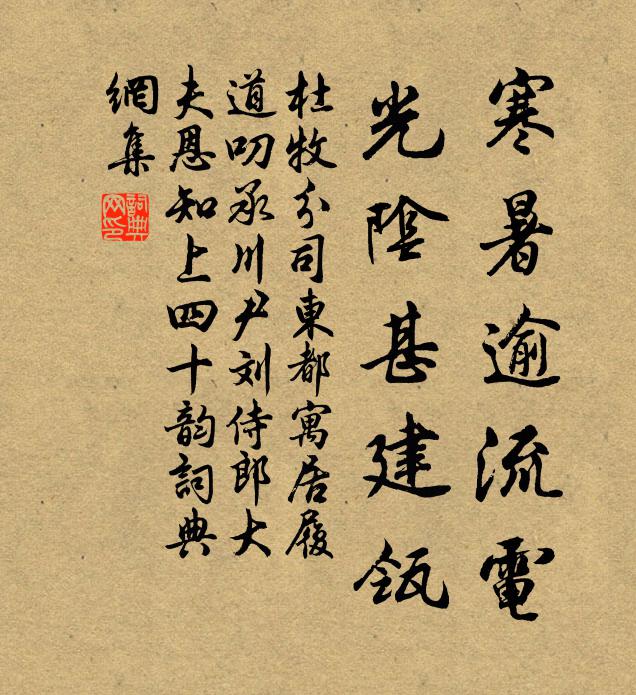 寒暑逾流電
光陰甚建瓴
杜牧分司東都寓居履
道叨承川尹刘侍郎大
夫恩知上四十韵詞典
網集
詞典網印